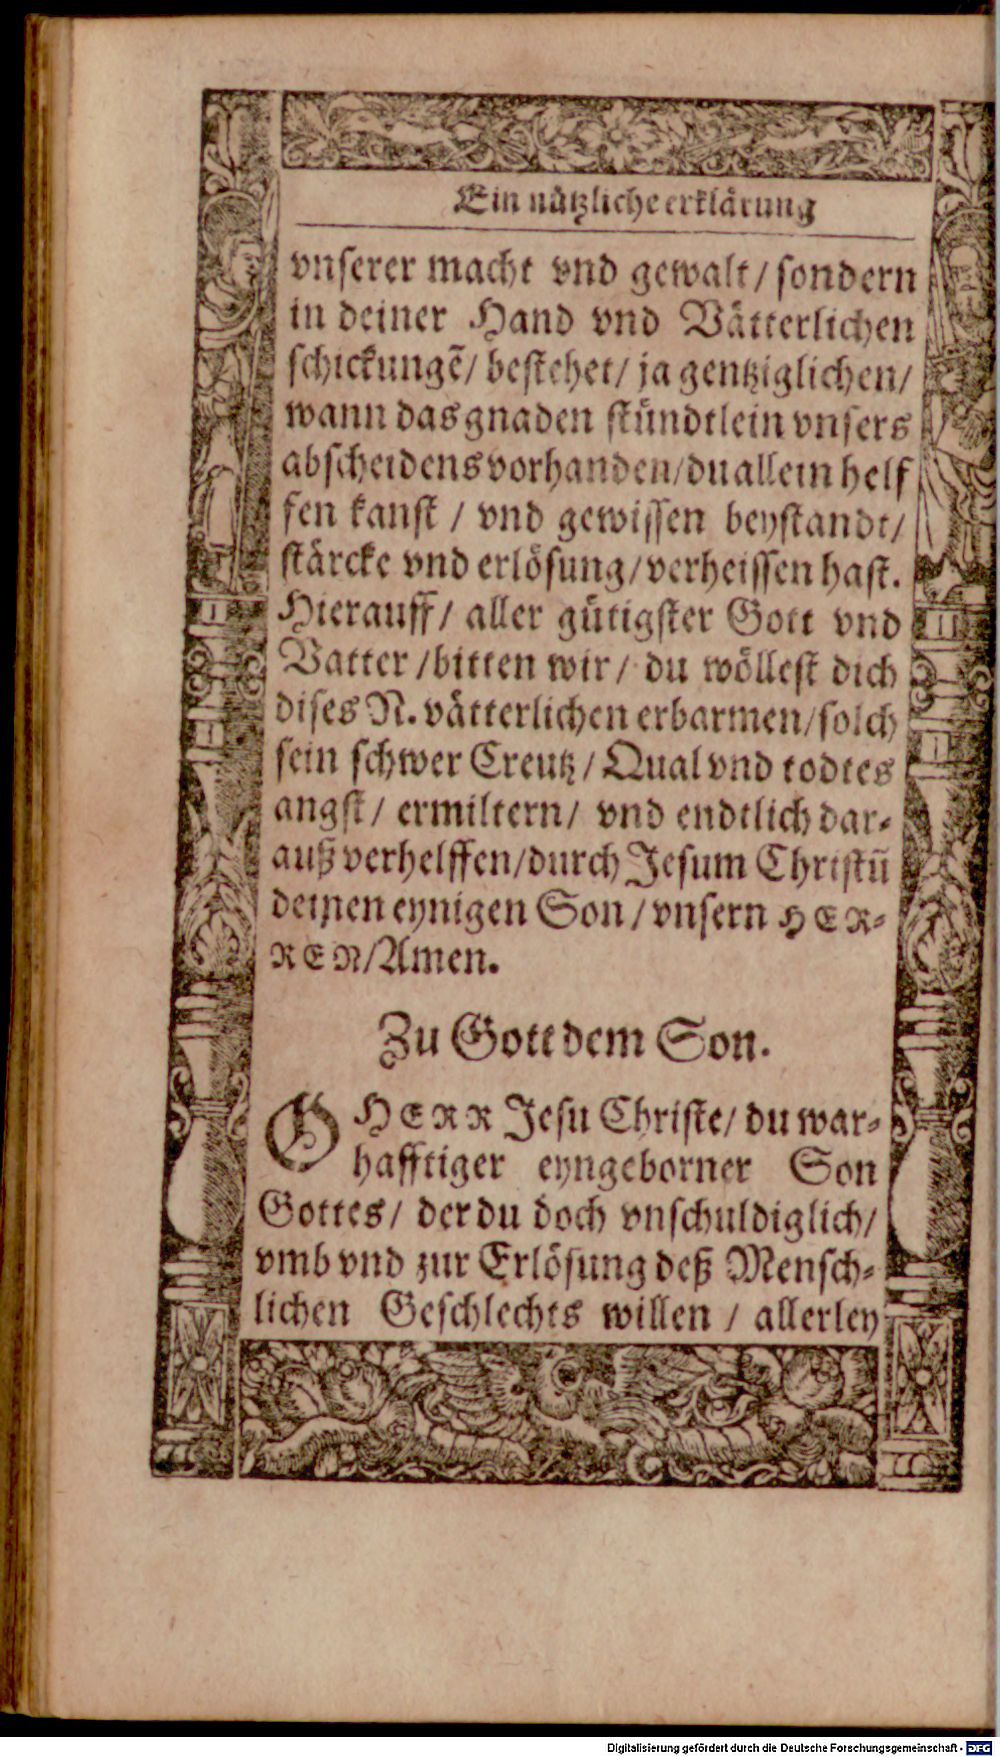 Ein nützliche erklärung
vnserer macht vnd gewalt / sondern
in deiner Hand vnd Vätterlichen
schickungẽ / bestehet / ja gentziglichen /
wann das gnaden stündtlein vnsers
abscheidens vorhanden / du allein helf
fen kanst / vnd gewissen beystandt /
stärcke vnd erlösung / verheissen hast.
Hierauff / aller gütigster Gott vnd
Vatter / bitten wir / du wöllest dich
dises N. vätterlichen erbarmen / solch
sein schwer Creutz / Qual vnd todtes
angst / ermiltern / vnd endtlich dar-
auß verhelffen / durch Jesum Christũ
deinen eynigen Son / vnsern HER-
REN / Amen.
Zu Gott dem Son.
O HERR Jesu Christe / du war-
hafftiger eyngeborner Son
Gottes / der du doch vnschuldiglich /
vmb vnd zur Erlösung deß Mensch-
lichen Geschlechts willen / allerley
Digitalisierung gefördert durch die Deutsche Forschungsgemeinschaft - DFG